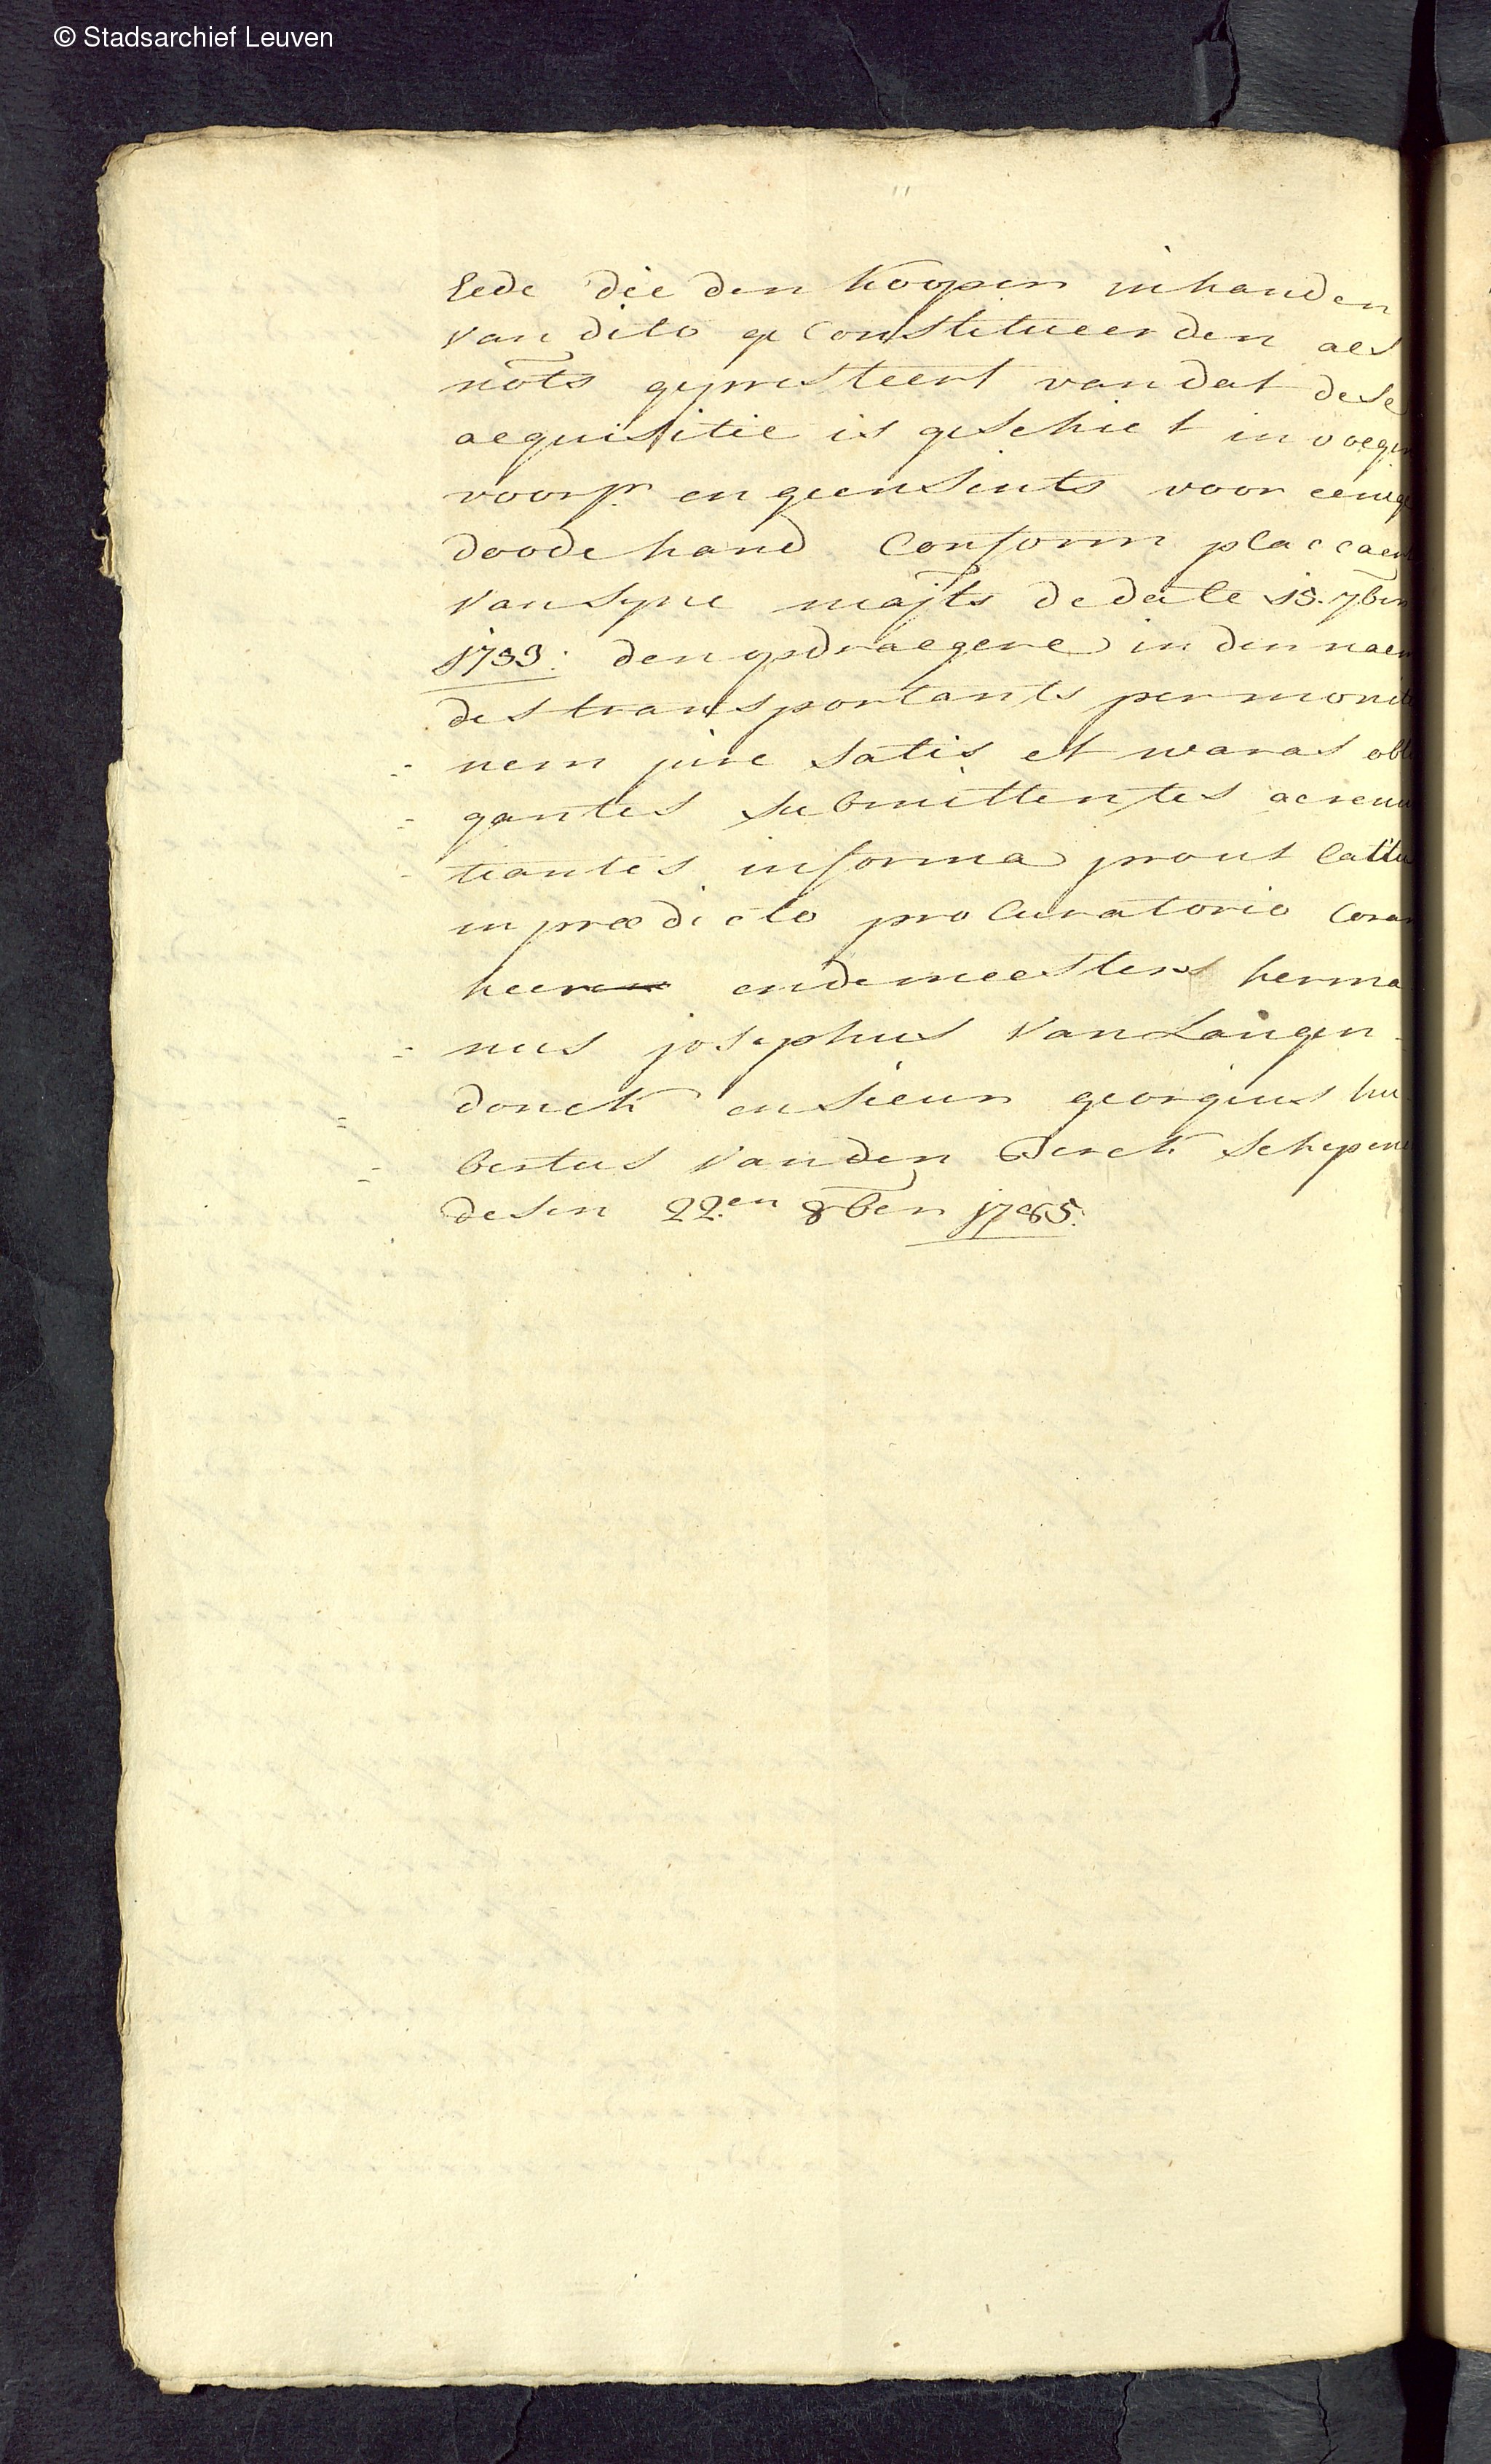 © Stadsarchief Leuven
Eede die den Kooper in handen
van dito geConstitueerden als
nots gepresteert van dat dese
acquisitie is geschiet in voegen
voors. en geensints voor eenige
doode hand Conform placcaert
van syne majts de date 15. 7ber
1753: den opdraegere in den naem
des transportants per monit
= nem jure satis et waras obli
= gantes submittentes ac renun
- tiantes in forma prout latius
in prædicto procuratorio Coram
heer ende meesters herma
= nus josephus Van Langen-
donck en sieur georgius hu-
= bertus Vanden Berck Schepene
= desen 22.en 8ber 1785.